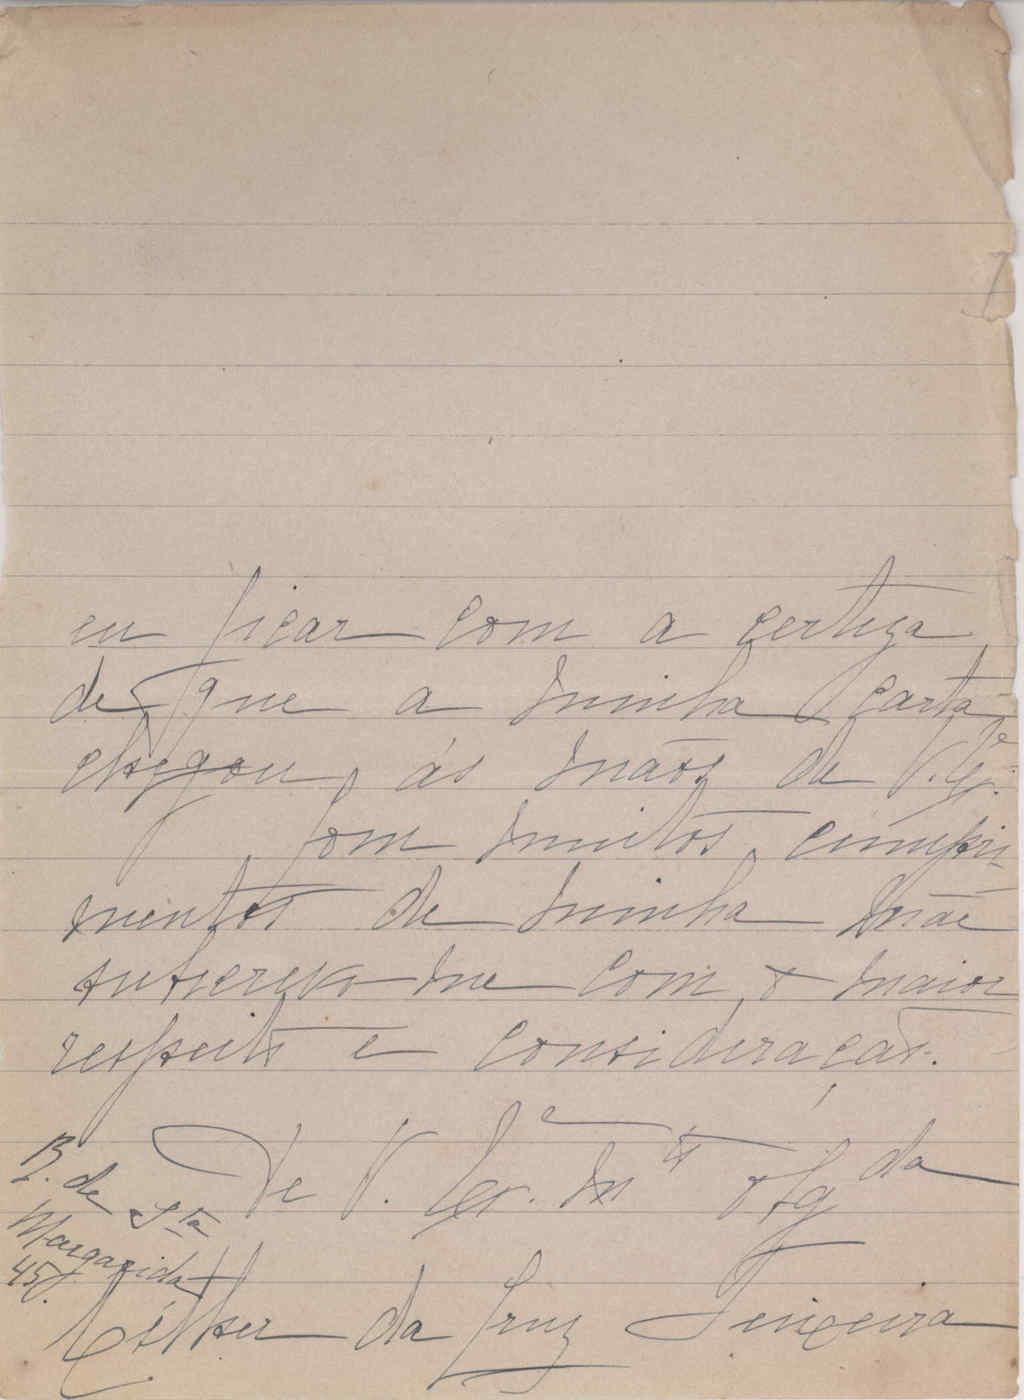 eu ficar com a certeza
de que a minha carta
chegou ás mãos de V. Ex.ª
Com muitos cumpri-
mentos de minha mãe
subscrevo-me com o maior
respeito e consideração.
De V. Ex. m.to obg.da
R. de S.ta
Margarida
45
Esther da Cruz Teixeira